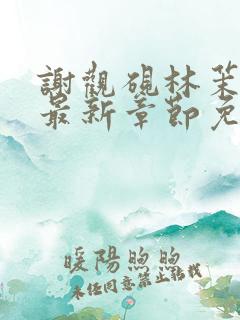 謝觀硯林茱
最新章節免
暖陽煦煦
未任同意禁止轉載